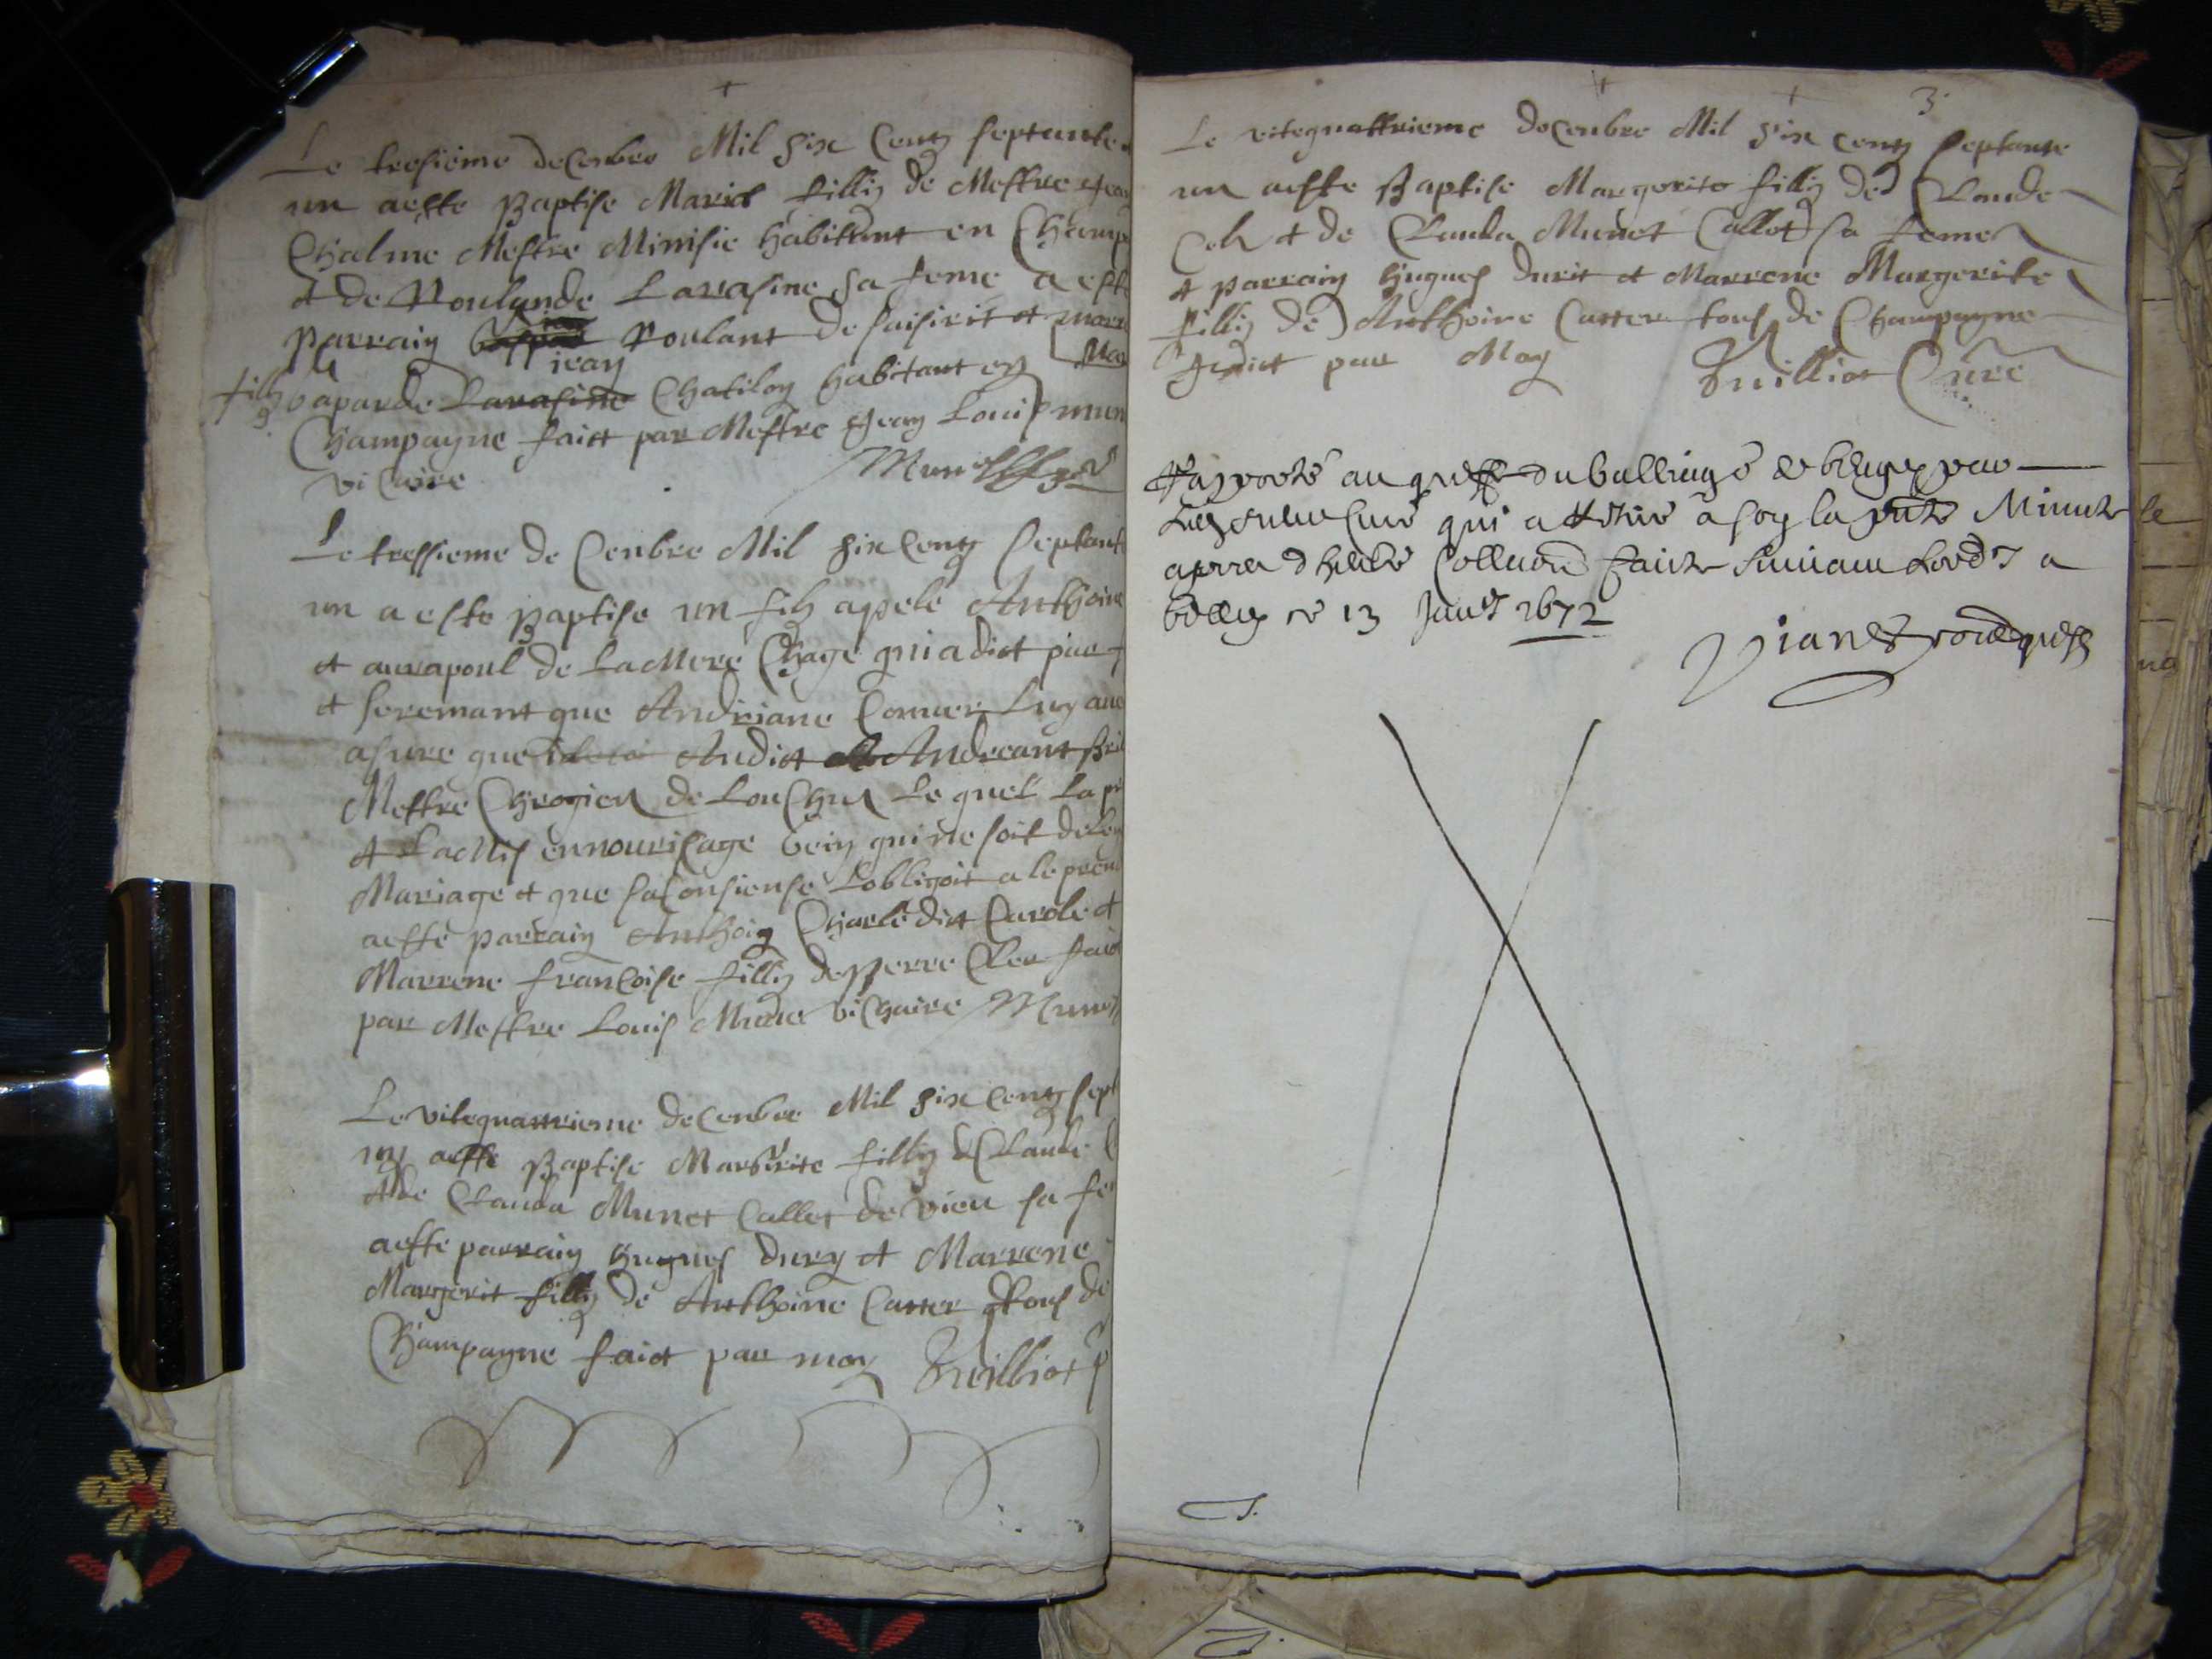 Le tresiéme decenbre Mil six Centz septante
un aeste Baptise Marie filliz de Mestre Jean
Chalme Mestre Minisie habittant en Champ
et de Roulande Lavasine sa feme a este
parrain jean Roulant de saisirit et marr
jean
filliz gaparde Lavasine Chatilon habitant en
Champagne faict par Mestre Jean Louis mun
vicaire
Le tressieme de Cenbre Mil six Centz septant
un a este Baptise un filz apele Anthoine
et au rapoul de La Mere Chage qui a dict par
et seremant que Andriane Comier Luy ave
asure que Audict Andreant
Mestre Chrogien de Lou Chu Le quel La pr
et La Mis en nourisage bein qui ne soit de Leg
Mariage et que sa Consiense Lobligoit a le pren
aesté parrain Anthoin Charle dict Carole et
Marrene francoise filliz de Perre Cler faict
par Mestre Louis Mune vichaire Munet
Le vitequattrieme decenbre Mil six Centz sept
un aeste Baptise Margirite filliz de Claude C
et de Clauda Munet Callet de vieu sa fe
aeste parrain hugues Dury et Marrene
Margerit filliz de Anthoine Carrer tous de
Champagne faict par moy Tuilliot
3
Le vitequattrieme decenbre Mil six centz septante
un aeste Baptise Margerite filliz de Claude
Cel et de Clauda Munet Callet sa feme
et parrain hugues durit et Marrene Margerite
filliz de Anthoine Carrer tous de Champagne
par Moy Tuilliot Curé
Raporté au greffe du balliage de bellay par
curé qui a retiré a soy la pnte Minute
apres dheue Collaon faicte suivant Lord a
belley ce 13 Janr 1672